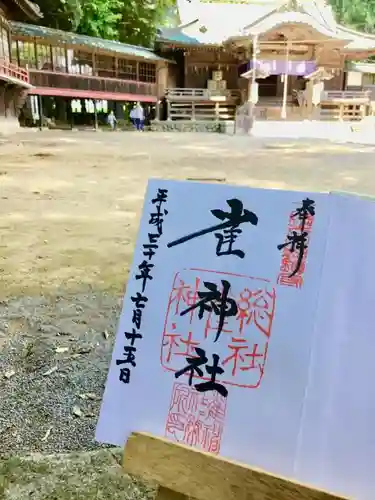 奉拝
雀神社
総社
神社
平成三十年七月十五日